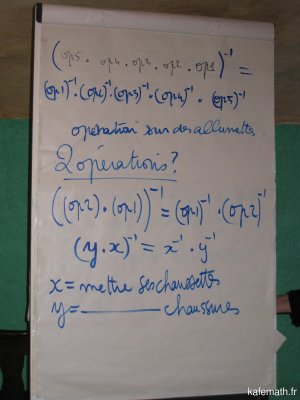 (op5 · op4 · op3 · op2 · op1)⁻¹ =
(op1)⁻¹·(op2)⁻¹·(op3)⁻¹·(op4)⁻¹ · (op5)⁻¹
opération sur des allumettes.
2 opérations ?
((op2)·(op1))⁻¹ = (op1)⁻¹·(op2)⁻¹
(y·x)⁻¹ = x⁻¹·y⁻¹
x = mettre ses chaussettes
y = ———— chaussures
kafemath.fr